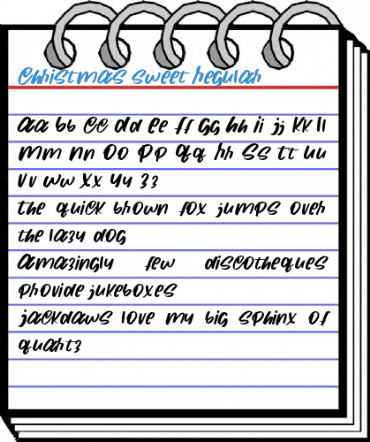 Christmas Sweet Regular
Aa Bb Cc Dd Ee Ff Gg Hh Ii Jj Kk Ll
Mm Nn Oo Pp Qq Rr Ss Tt Uu
Vv Ww Xx Yy Zz
The quick brown fox jumps over
the lazy dog
Amazingly few discotheques
provide jukeboxes
Jackdaws love my big sphinx of
quartz